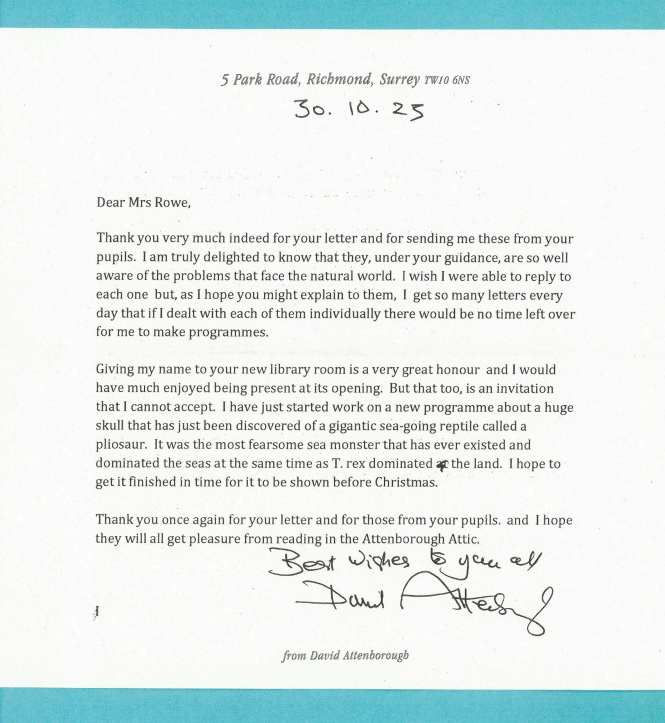 5 Park Road, Richmond, Surrey TW10 6NS
30. 10. 25
Dear Mrs Rowe,
Thank you very much indeed for your letter and for sending me these from your
pupils. I am truly delighted to know that they, under your guidance, are so well
aware of the problems that face the natural world. I wish I were able to reply to
each one but, as I hope you might explain to them, I get so many letters every
day that if I dealt with each of them individually there would be no time left over
for me to make programmes.
Giving my name to your new library room is a very great honour and I would
have much enjoyed being present at its opening. But that too, is an invitation
that I cannot accept. I have just started work on a new programme about a huge
skull that has just been discovered of a gigantic sea-going reptile called a
pliosaur. It was the most fearsome sea monster that has ever existed and
dominated the seas at the same time as T. rex dominated the land. I hope to
get it finished in time for it to be shown before Christmas.
Thank you once again for your letter and for those from your pupils. and I hope
they will all get pleasure from reading in the Attenborough Attic.
Best wishes to you all
David Attenborough
from David Attenborough